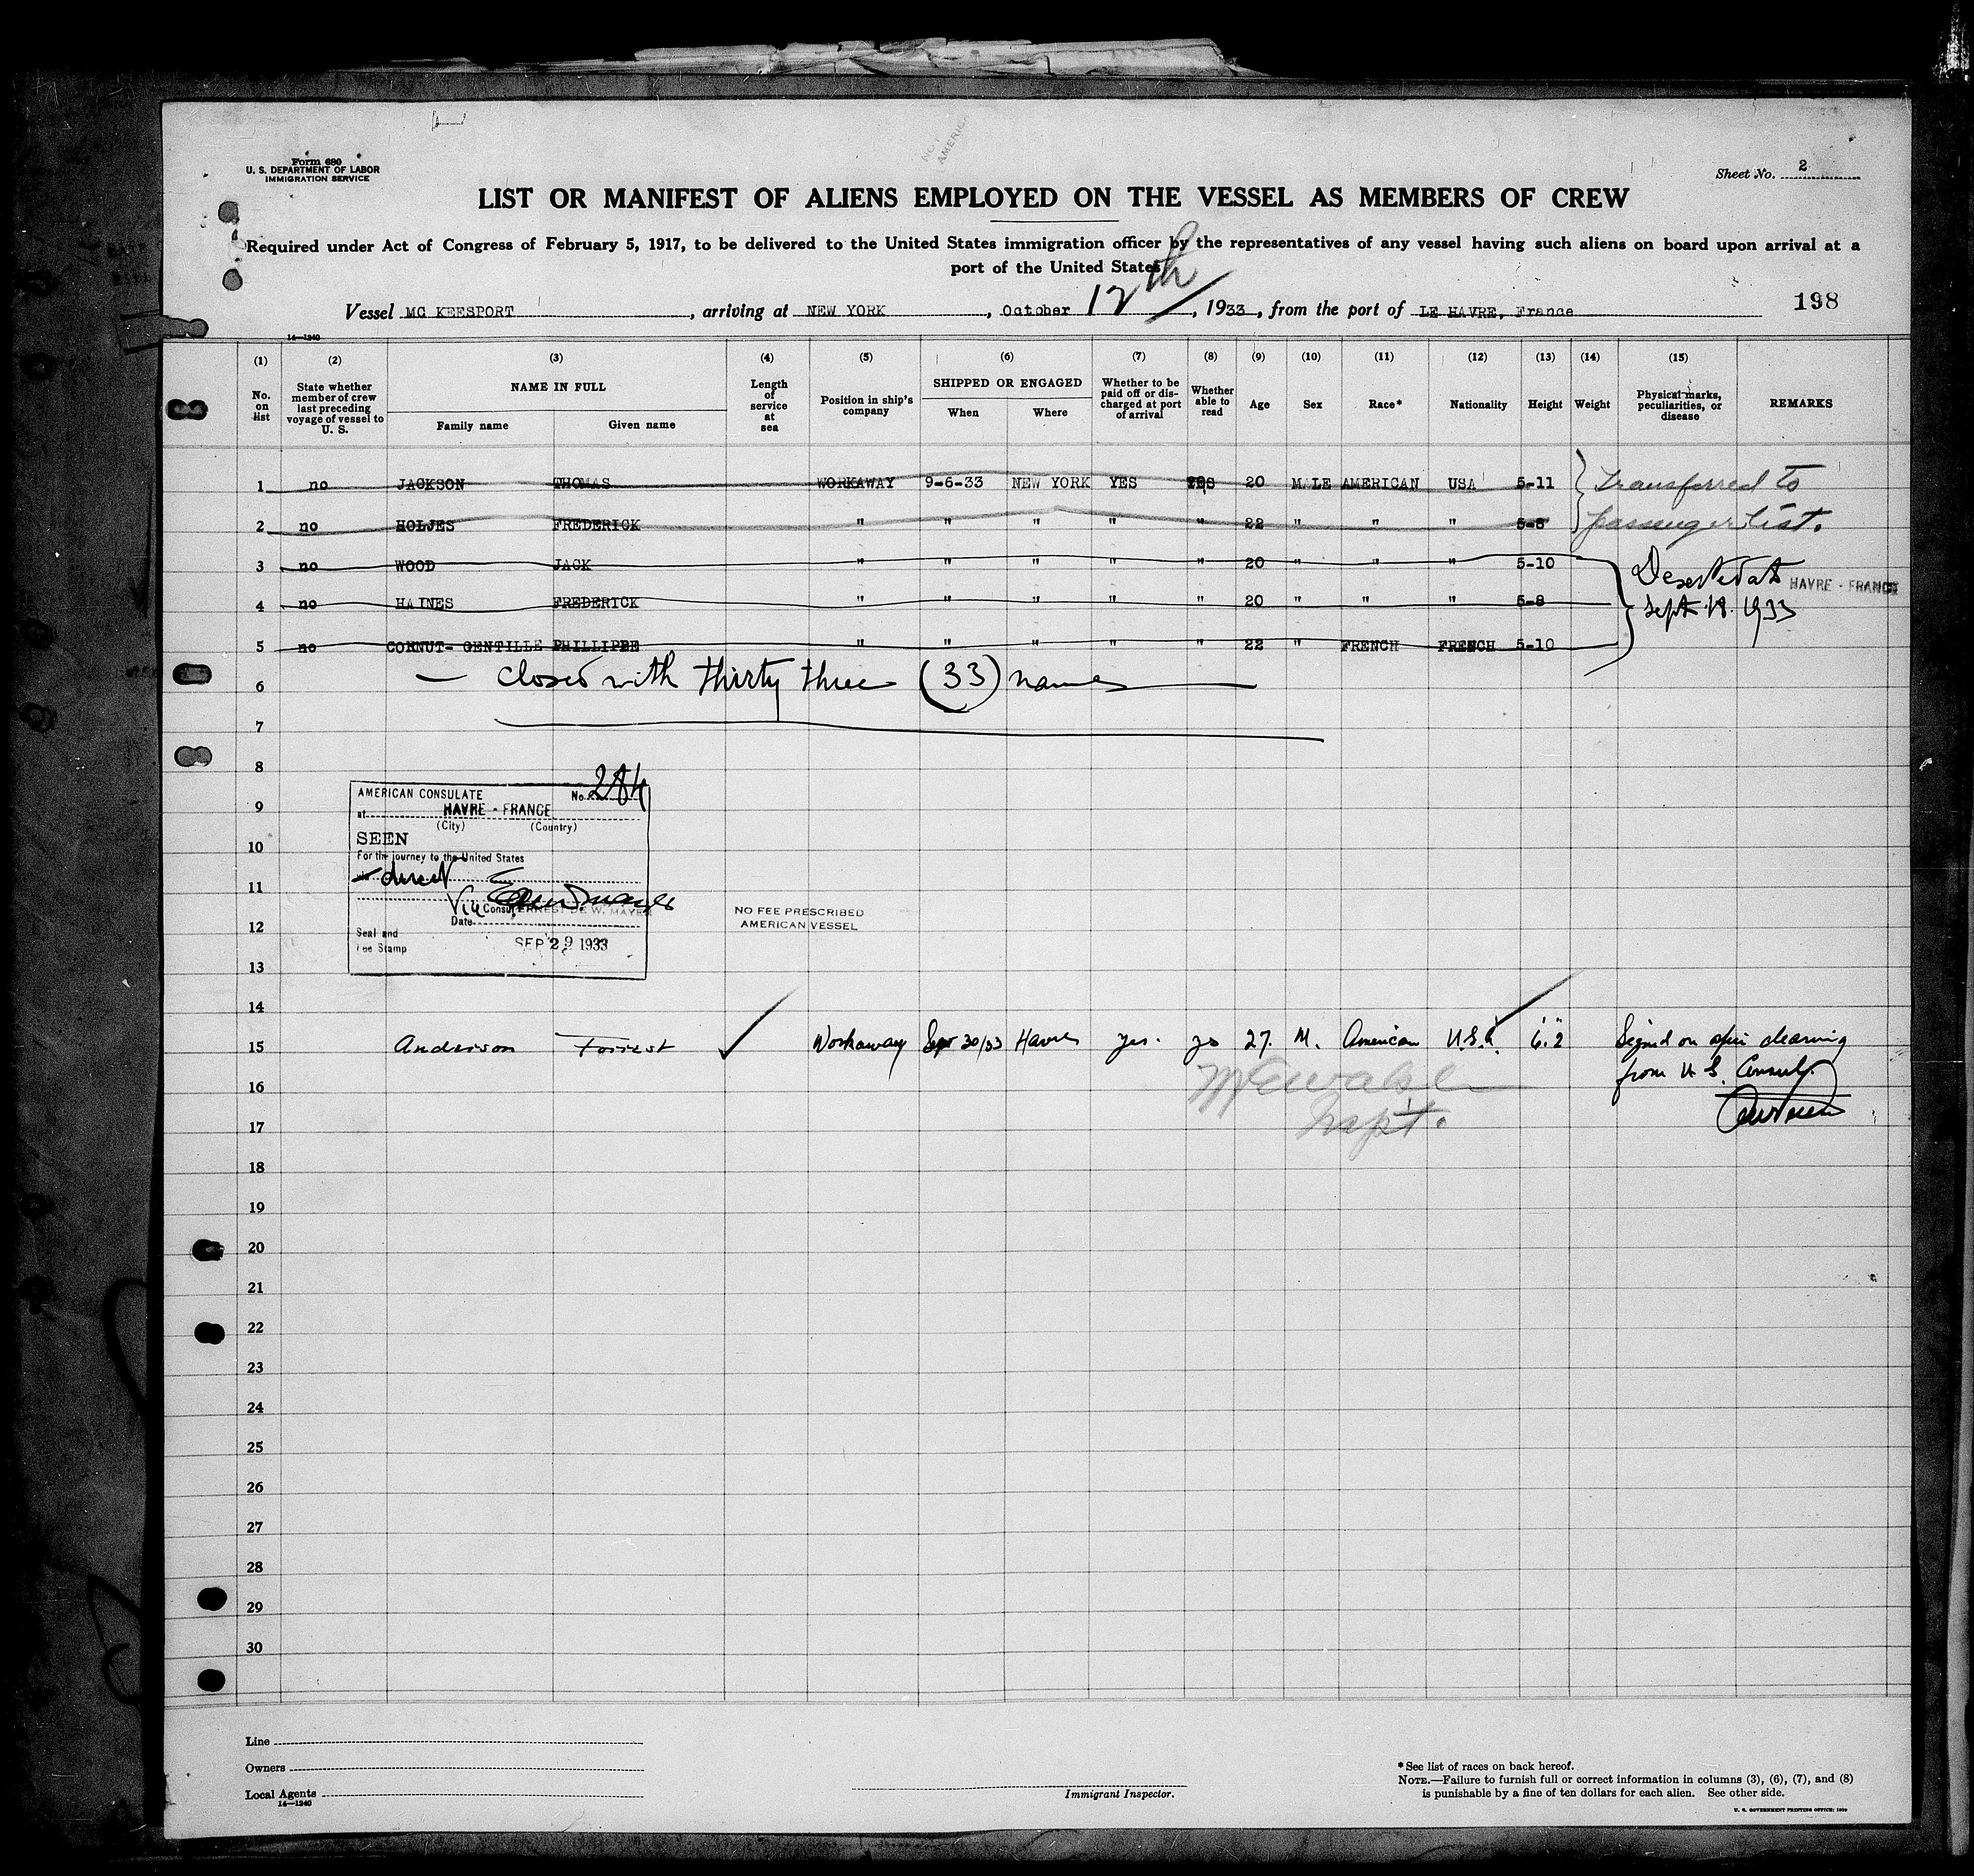 NOT
AMERIC
Form 680
U. S. DEPARTMENT OF LABOR
IMMIGRATION SERVICE
Sheet No. 2
LIST OR MANIFEST OF ALIENS EMPLOYED ON THE VESSEL AS MEMBERS OF CREW
Required under Act of Congress of February 5, 1917, to be delivered to the United States immigration officer by the representatives of any vessel having such aliens on board upon arrival at a
port of the United States
Vessel MC KEESPORT, arriving at NEW YORK, October 12th, 1933, from the port of LE HAVRE, France
198
14—1240
(1) (2) (3) (4) (5) (6) (7) (8) (9) (10) (11) (12) (13) (14) (15)
No. on list
State whether member of crew last preceding voyage of vessel to U. S.
NAME IN FULL
Family name Given name
Length of service at sea
Position in ship's company
SHIPPED OR ENGAGED
When Where
Whether to be paid off or discharged at port of arrival
Whether able to read
Age Sex Race* Nationality Height Weight
Physical marks, peculiarities, or disease
REMARKS
1 no JACKSON THOMAS WORKAWAY 9-6-33 NEW YORK YES YES 20 MALE AMERICAN USA 5-11 Transferred to
2 no HOLJES FREDERICK " " " " " 22 " " " 5-8 passenger list.
3 no WOOD JACK " " " " " 20 " " " 5-10 Deserted at HAVRE - FRANCE
4 no HAINES FREDERICK " " " " " 20 " " " 5-8 Sept. 19. 1933
5 no CORNUT- GENTILLE PHILLIPPE " " " " " 22 " FRENCH FRENCH 5-10
6 — closed with thirty three (33) names
7
8
9
10
11
12
13
14
AMERICAN CONSULATE No. 284
at HAVRE - FRANCE
(City) (Country)
SEEN
For the journey to the United States
direct
Vice Consul ERNEST DE W. MAYER
Date
Seal and
Fee Stamp
SEP 29 1933
NO FEE PRESCRIBED
AMERICAN VESSEL
15 Anderson Forrest ✓ Workaway Sept 30/33 Havre yes. yes 27. M. American U.S.A. 6'.2" Signed on after clearing
16 from U S. Consul.
17 Inspt.
18
19
20
21
22
23
24
25
26
27
28
29
30
Line
Owners
Local Agents
14—1240
Immigrant Inspector.
* See list of races on back hereof.
NOTE.—Failure to furnish full or correct information in columns (3), (6), (7), and (8)
is punishable by a fine of ten dollars for each alien. See other side.
U. S. GOVERNMENT PRINTING OFFICE: 1929